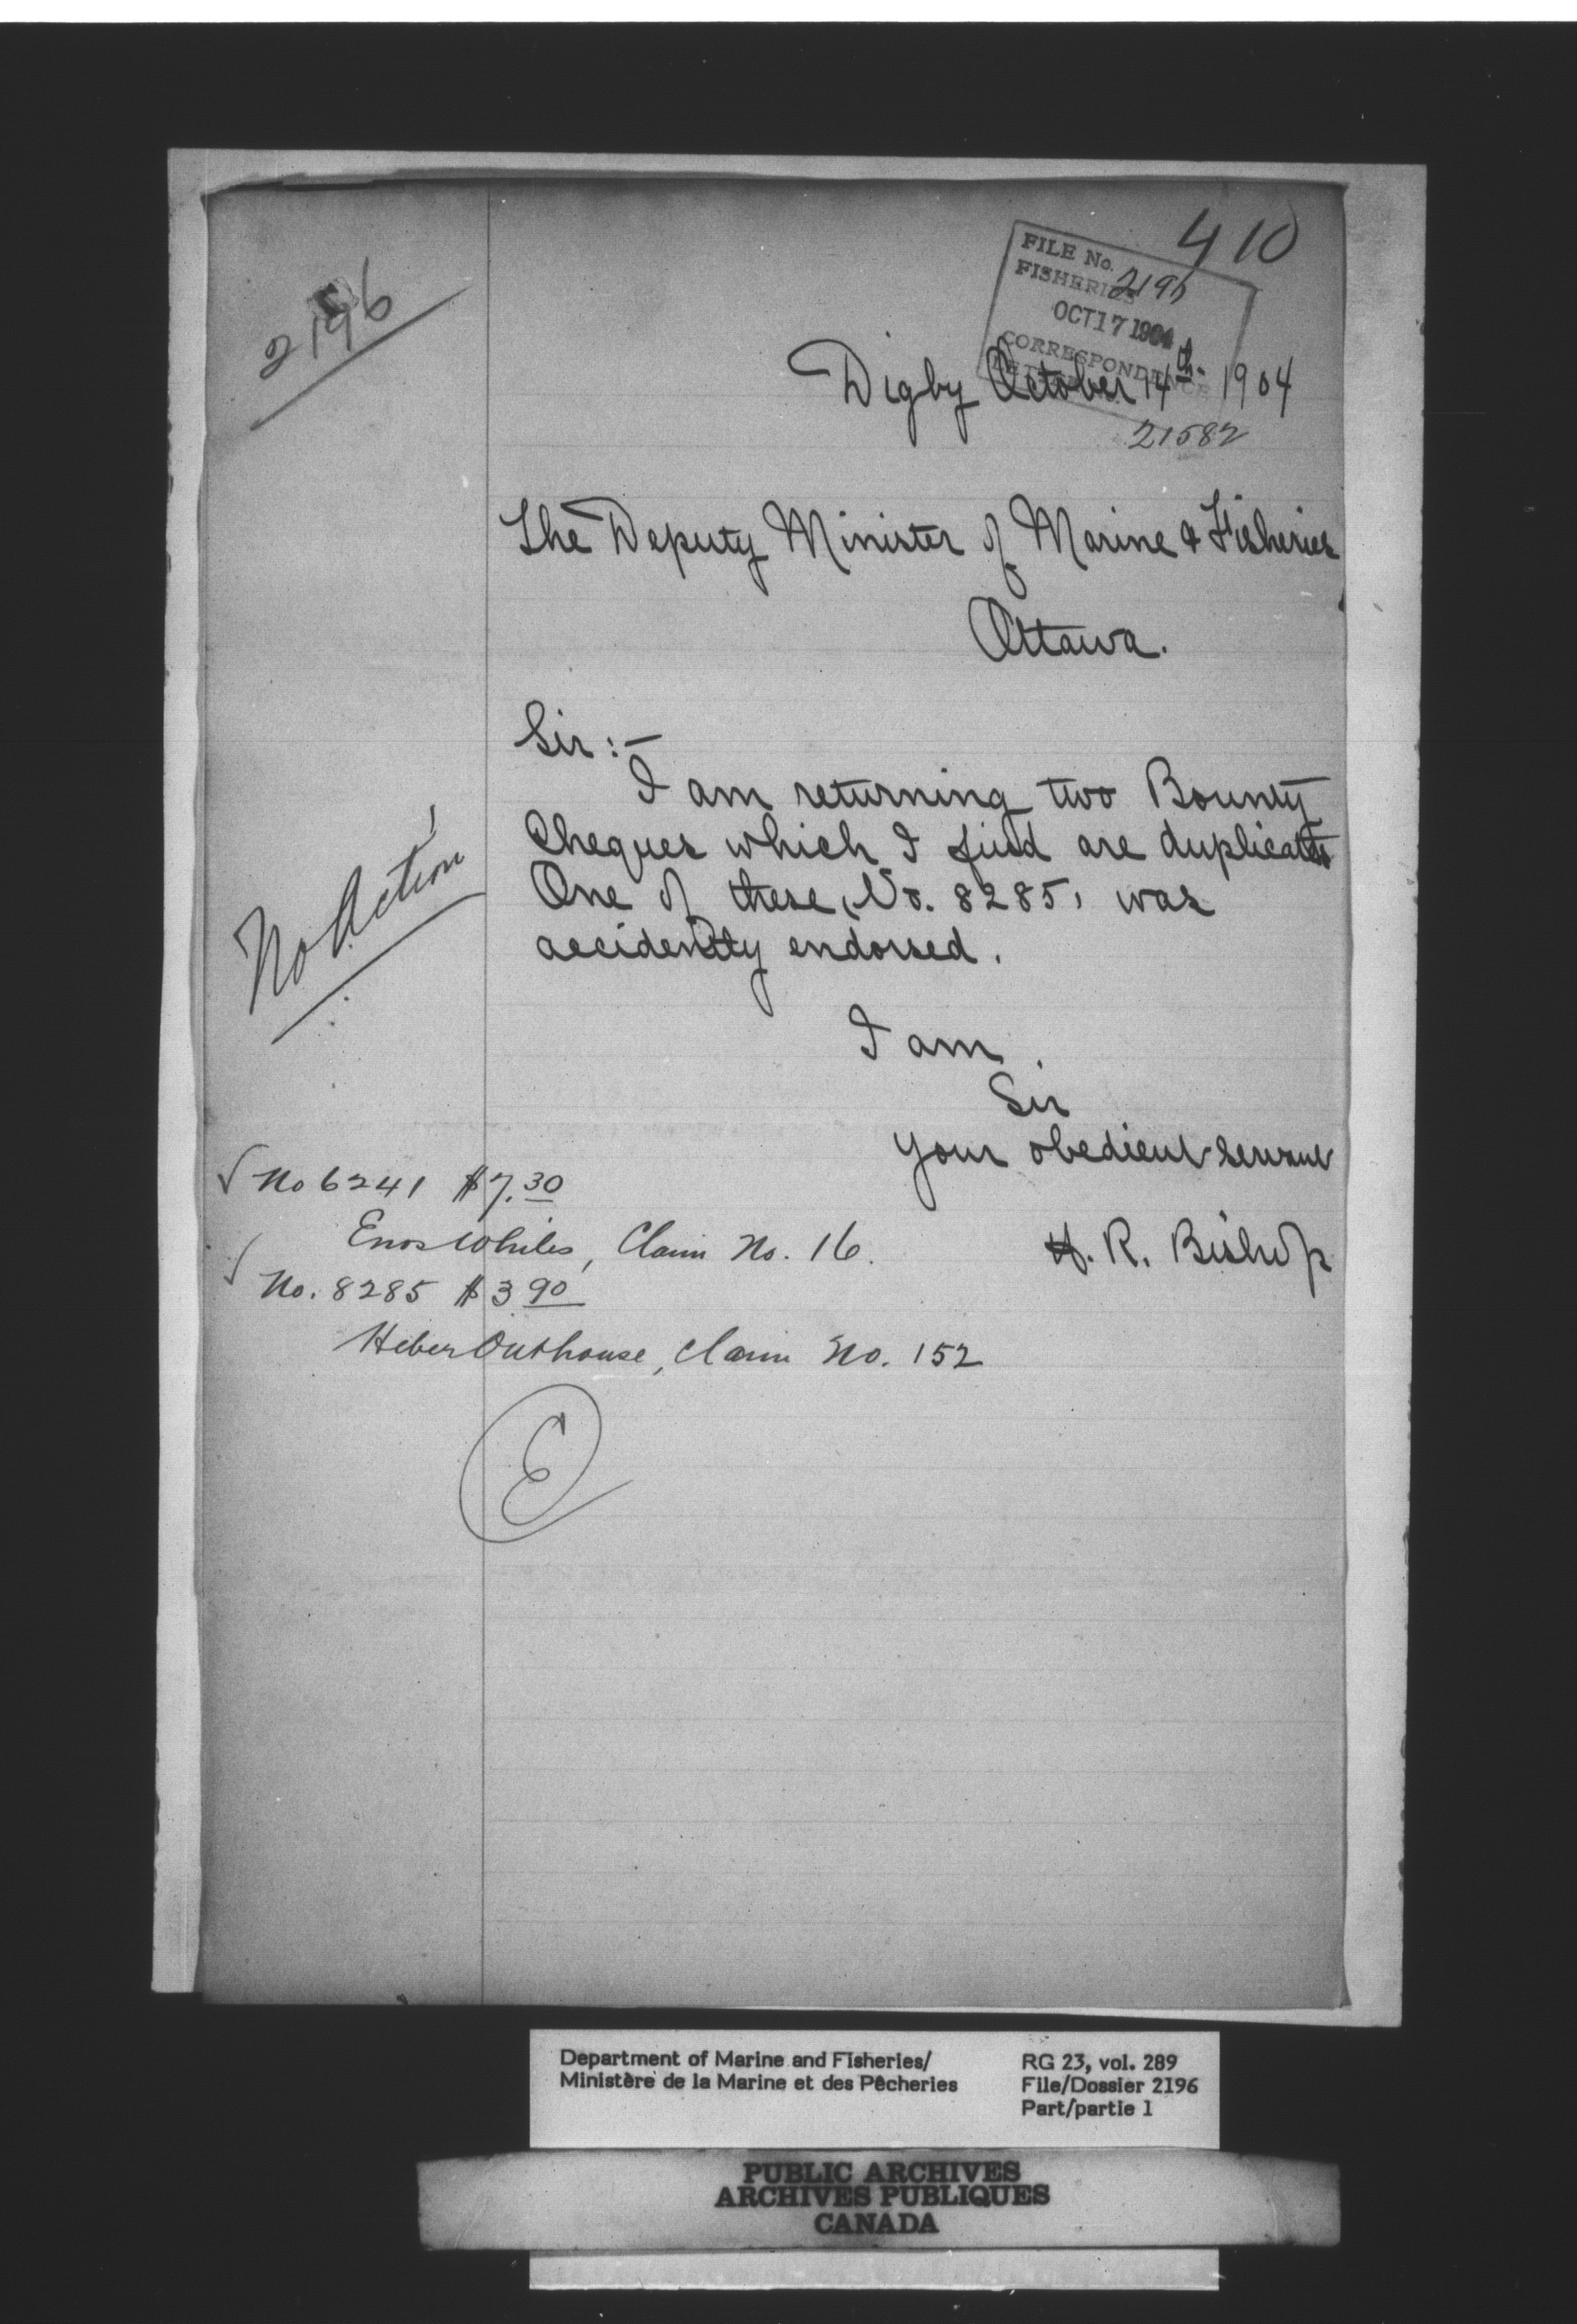 410
2196
FILE No. 2196
FISHERIES
OCT 17 1904
CORRESPONDENCE
Digby October 14th. 1904
21582
The Deputy Minister of Marine & Fisheries
Ottawa.
Sir:-
I am returning two Bounty
Cheques which I find are duplicates
One of these, No. 8285, was
accidently endorsed.
No Action
I am
Sir
Your obedient servant
H. R. Bishop
√ No 6241 $7.30
Enos Whiles, Claim No. 16.
√ No. 8285 $3 90
Heber Outhouse, Claim No. 152
E
Department of Marine and Fisheries/
Ministère de la Marine et des Pêcheries
RG 23, vol. 289
File/Dossier 2196
Part/partie 1
PUBLIC ARCHIVES
ARCHIVES PUBLIQUES
CANADA